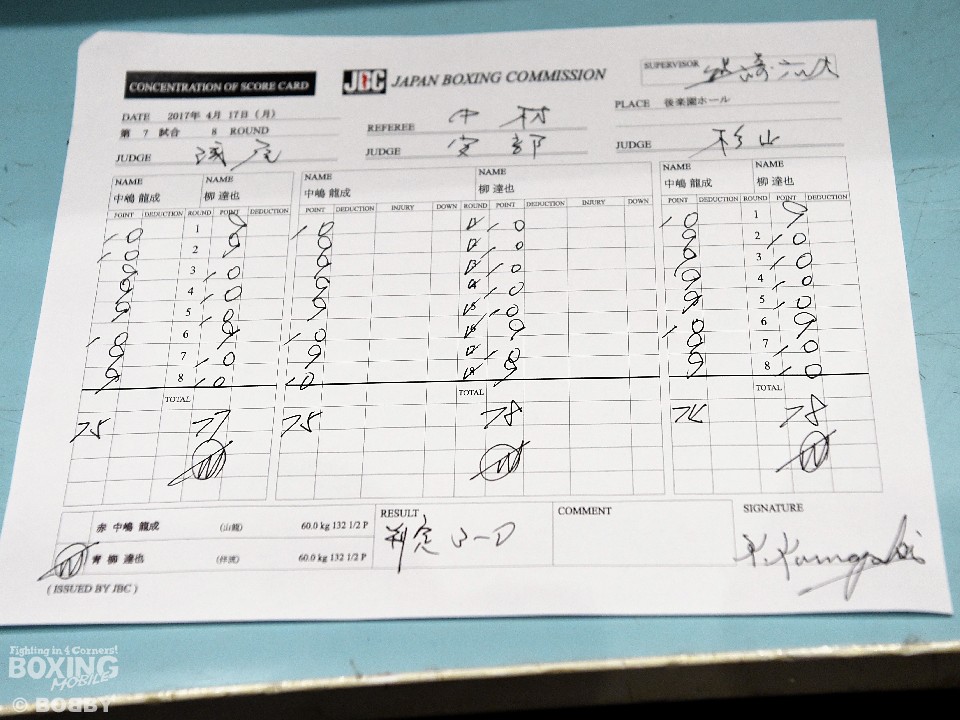 CONCENTRATION OF SCORE CARD
JBC JAPAN BOXING COMMISSION
SUPERVISOR
DATE 2017年 4月 17日 (月)
第 7 試合 8 ROUND
REFEREE 中村
PLACE 後楽園ホール
JUDGE
JUDGE 安部
JUDGE 杉山
NAME NAME NAME NAME NAME NAME
中嶋 龍成 柳 達也 中嶋 龍成 柳 達也 中嶋 龍成 柳 達也
POINT DEDUCTION ROUND POINT DEDUCTION POINT DEDUCTION INJURY DOWN ROUND POINT DEDUCTION INJURY DOWN POINT DEDUCTION ROUND POINT DEDUCTION
10 1 9 10 10 10 1 9
9 2 9 9 10 9 2 10
9 3 10 9 10 9 3 10
9 4 10 9 10 9 4 10
9 5 10 9 10 9 5 10
10 6 9 10 9 10 6 9
9 7 10 9 10 9 7 10
9 8 10 10 9 9 8 10
TOTAL TOTAL TOTAL
75 77 75 78 74 78
赤 中嶋 龍成 (山龍) 60.0 kg 132 1/2 P
青 柳 達也 (伴流) 60.0 kg 132 1/2 P
RESULT
判定 3-0
COMMENT
SIGNATURE
( ISSUED BY JBC )
Fighting in 4 Corners!
BOXING
MOBILE
© BOBBY